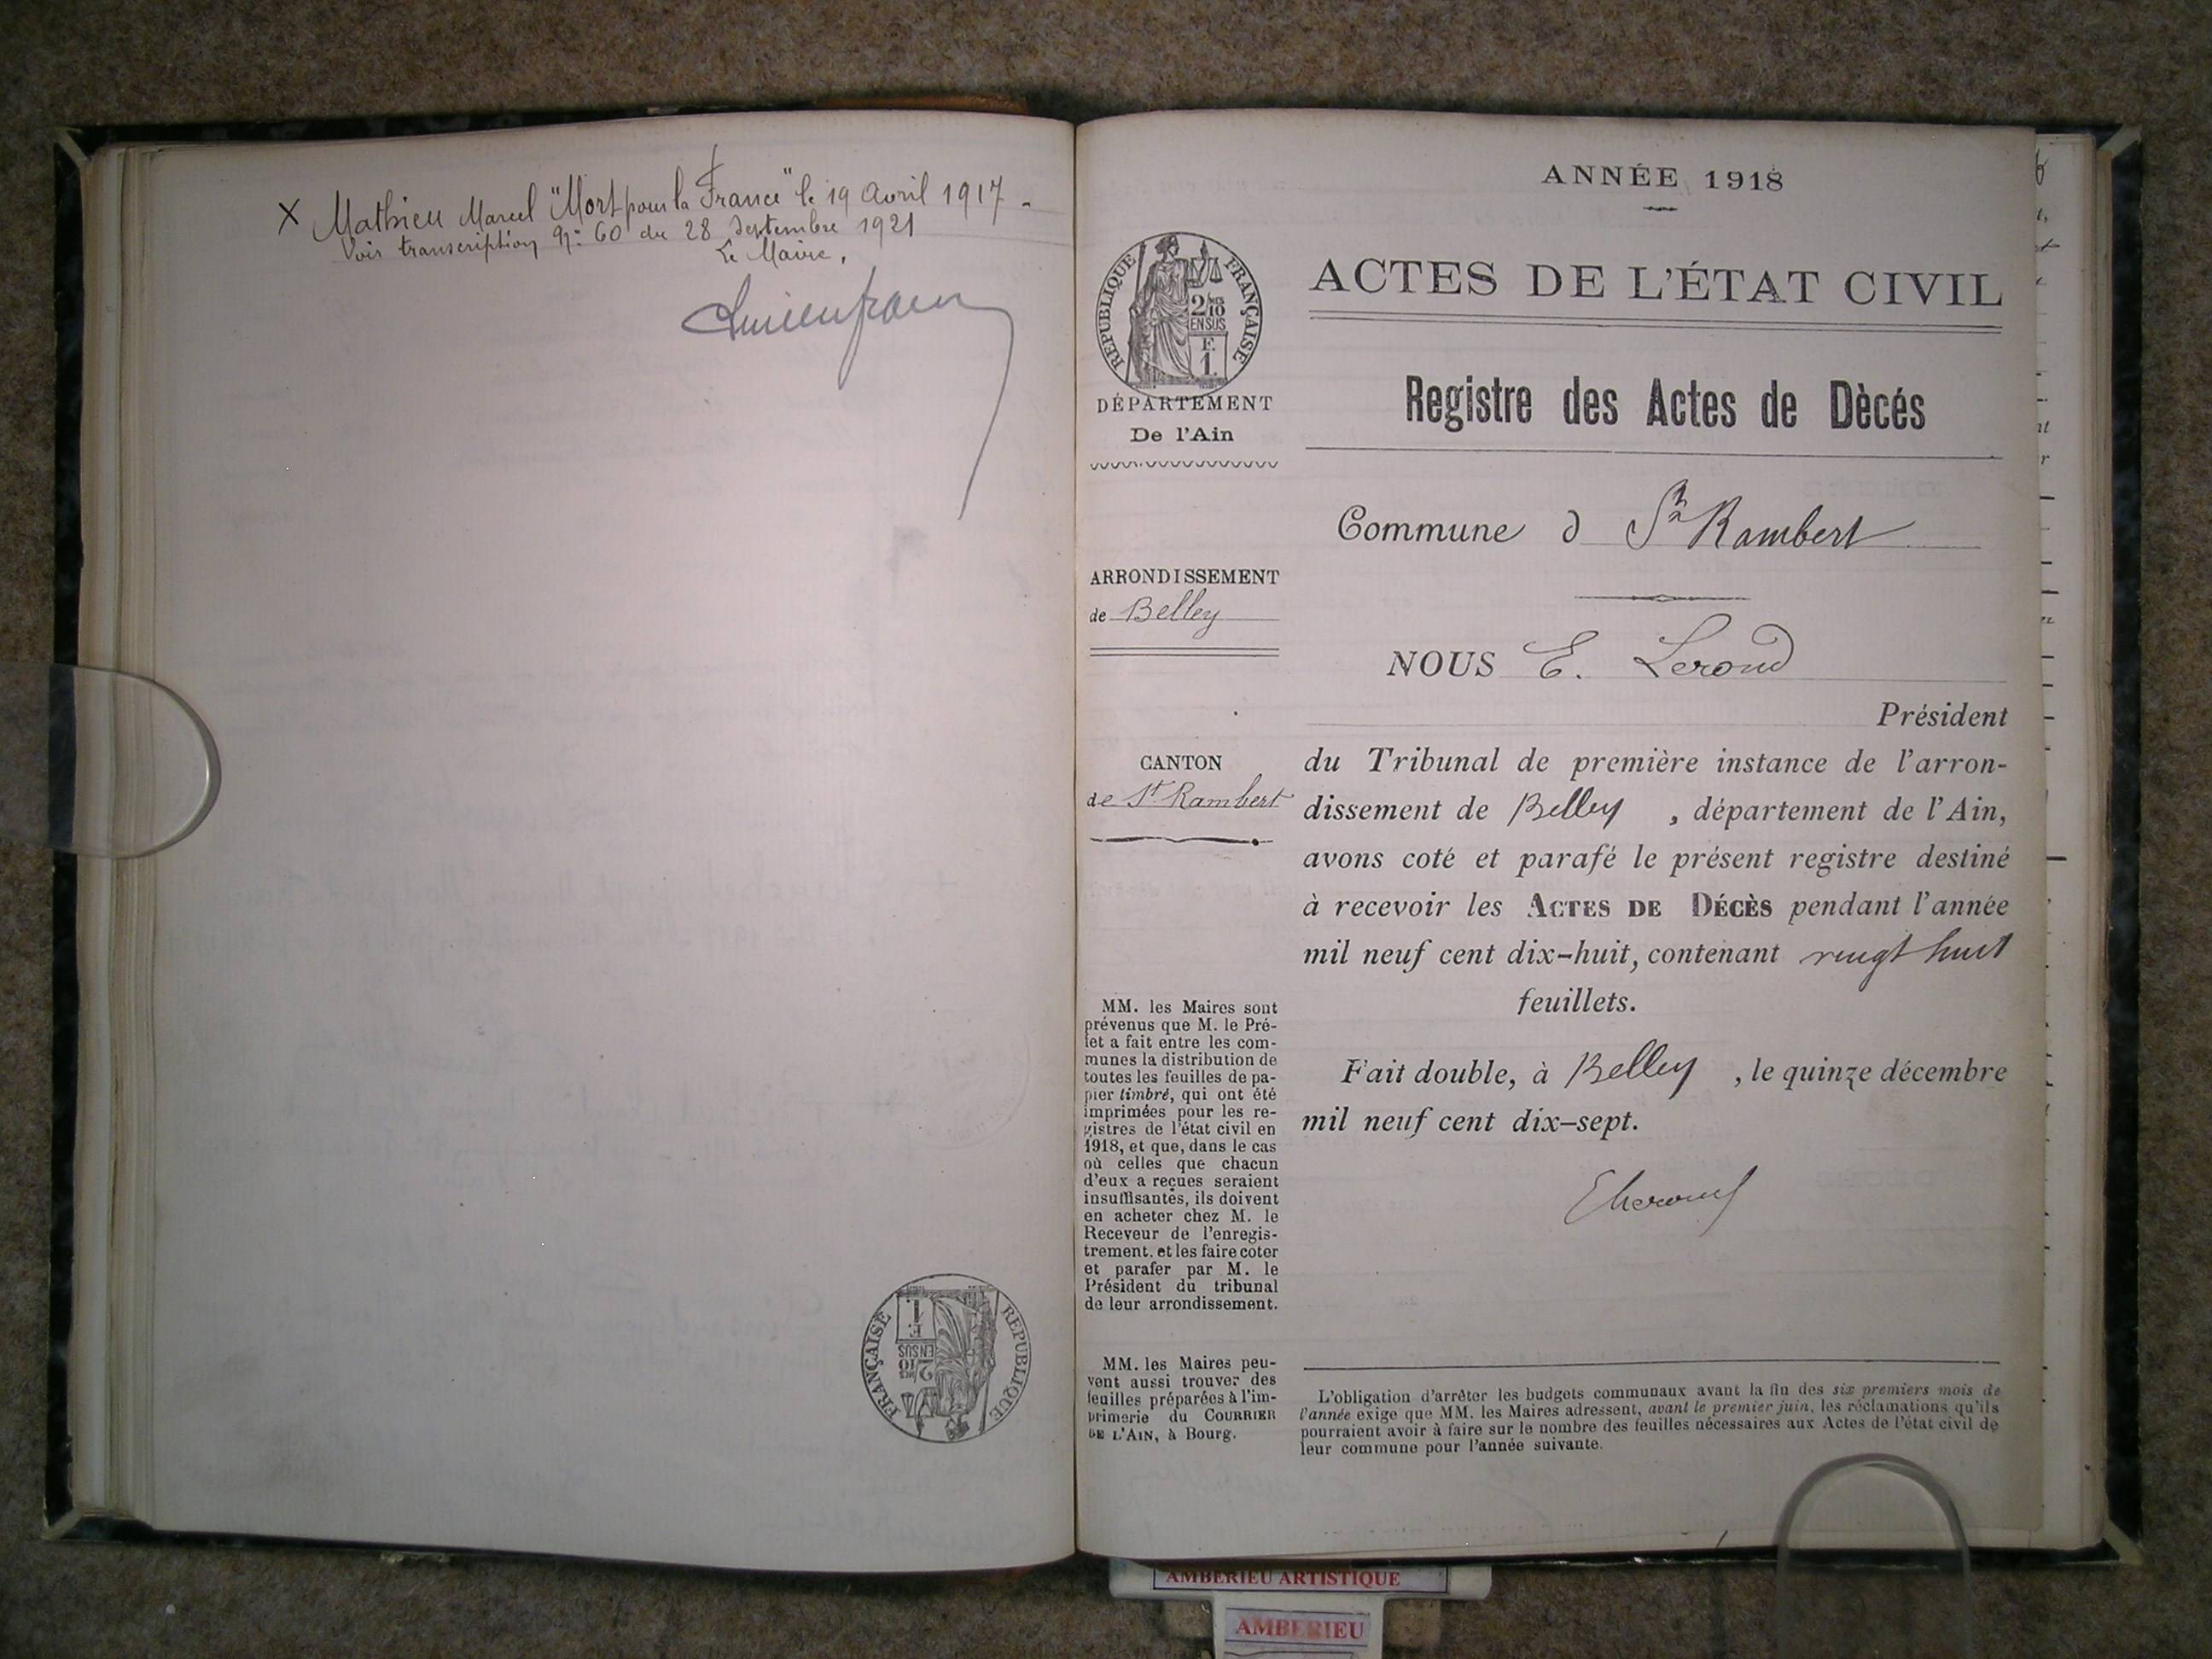 X Mathieu Marcel "Mort pour la France" le 19 Avril 1917 -
Voir transcription No: 60 du 28 Septembre 1921
Le Maire,
RÉPUBLIQUE FRANÇAISE
2/10 EN SUS
F. 1.
ANNÉE 1918
ACTES DE L'ÉTAT CIVIL
Registre des Actes de Dècés
RÉPUBLIQUE FRANÇAISE
2/10
EN SUS
F.
1.
DÉPARTEMENT
De l'Ain
ARRONDISSEMENT
de Belley
CANTON
de St Rambert
MM. les Maires sont
prévenus que M. le Pré-
fet a fait entre les com-
munes la distribution de
toutes les feuilles de pa-
pier timbré, qui ont été
imprimées pour les re-
gistres de l'état civil en
1918, et que, dans le cas
où celles que chacun
d'eux a reçues seraient
insuffisantes, ils doivent
en acheter chez M. le
Receveur de l'enregis-
trement, et les faire coter
et parafer par M. le
Président du tribunal
de leur arrondissement.
MM. les Maires peu-
vent aussi trouver des
feuilles préparées à l'im-
primerie du COURRIER
DE L'AIN, à Bourg.
Commune d St Rambert
NOUS E. Lerond
Président
du Tribunal de première instance de l'arron-
dissement de Belley , département de l'Ain,
avons coté et parafé le présent registre destiné
à recevoir les ACTES DE DÉCÈS pendant l'année
mil neuf cent dix-huit, contenant vingt huit
feuillets.
Fait double, à Belley , le quinze décembre
mil neuf cent dix-sept.
L'obligation d'arrêter les budgets communaux avant la fin des six premiers mois de
l'année exige que MM. les Maires adressent, avant le premier juin, les réclamations qu'ils
pourraient avoir à faire sur le nombre des feuilles nécessaires aux Actes de l'état civil de
leur commune pour l'année suivante.
AMBERIEU ARTISTIQUE
AMBERIEU